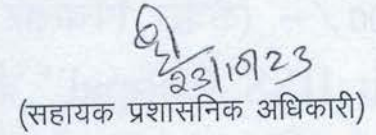 23/10/23
(सहायक प्रशासनिक अधिकारी)